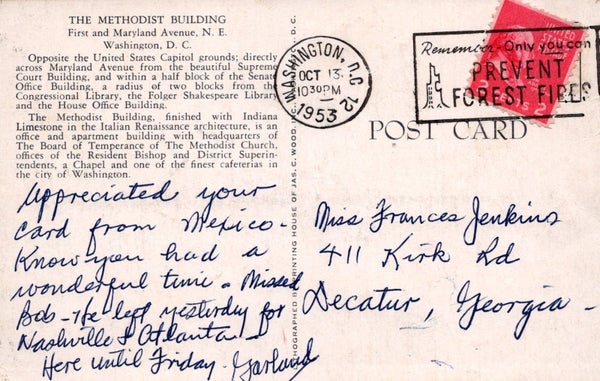 THE METHODIST BUILDING
First and Maryland Avenue, N. E.
Washington, D. C.
Opposite the United States Capitol grounds; directly
across Maryland Avenue from the beautiful Supreme
Court Building, and within a half block of the Senate
Office Building, a radius of two blocks from the
Congressional Library, the Folger Shakespeare Library
and the House Office Building.
The Methodist Building, finished with Indiana
Limestone in the Italian Renaissance architecture, is an
office and apartment building with headquarters of
The Board of Temperance of The Methodist Church,
offices of the Resident Bishop and District Superin-
tendents, a Chapel and one of the finest cafeterias in
the city of Washington.
Appreciated your
card from Mexico -
Know you had a
wonderful time. Missed
Bob - He left yesterday for
Nashville & Atlanta -
Here until Friday - Garland
PRINTING HOUSE OF JAS. C. WOOD, D. C.
WASHINGTON, D.C. 12
OCT 13
10 30 PM
1953
Remember - Only you can
PREVENT
FOREST FIRES
UNITED STATES
2
POST CARD
Miss Frances Jenkins
411 Kirk Rd
Decatur, Georgia -